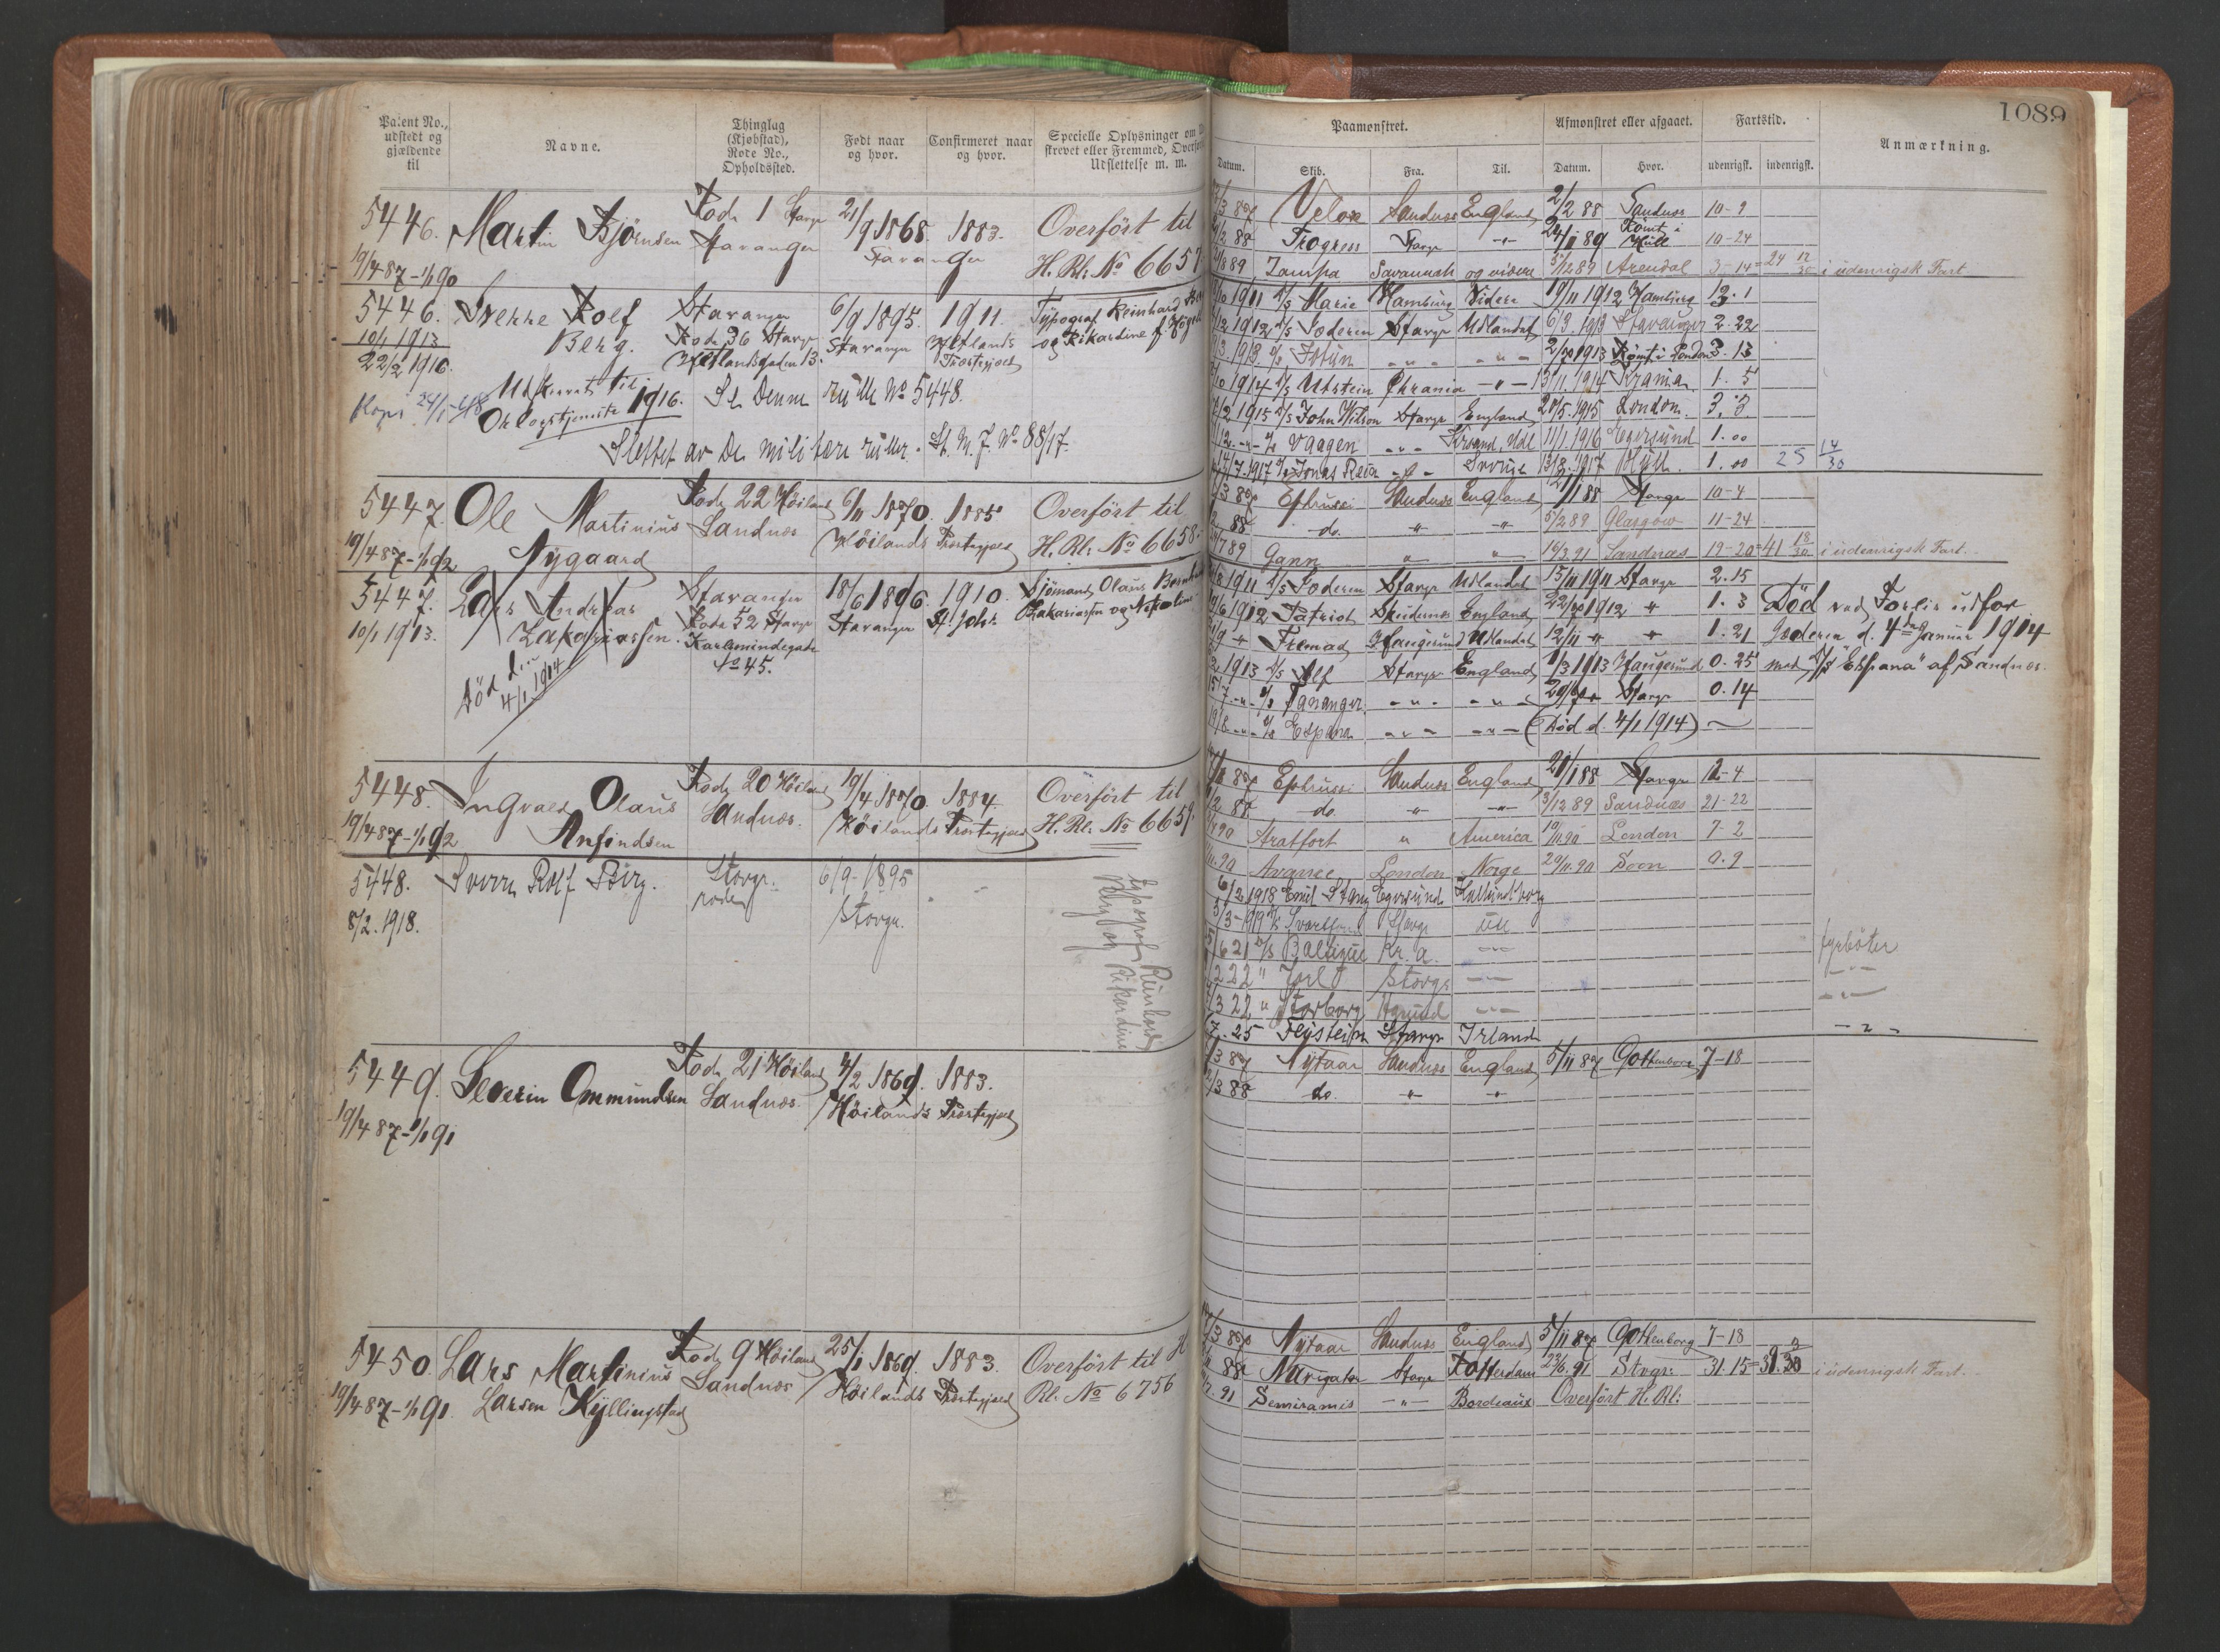 1089
Patent No., udstedt og gjældende til
Navne.
Thinglag (Kjøbstad), Rode No., Opholdssted.
Født naar og hvor.
Confirmeret naar og hvor.
Specielle Oplysninger om
skrevet eller Fremmed, Overfø
Udslettelse m. m.
Paamønstret.
Afmønstret eller afgaaet.
Fartstid.
Anmærkning.
Datum. Skib. Fra. Til. Datum. Hvor. udenrigsk. indenrigsk.
5446. Martin Bjørnsen Rode 1 Stavgr 21/9 1868. 1883. Overført til
19/4 87-1/1 90 Stavanger Stavanger H. Rl. No 6657
5446. Sverre Rolf Stavanger 6/9 1895. 1911. Typograf Reinhard
10/1 1913 Berg. Rode 36 Stavgr Stavanger Hetlands og Rikardine f.
22/2 1916. Hetlandsgaden 13. Præstegjæld
Udskrevet til
Orlogstjeneste 1916. Se denne rulle No 5448.
Slettet av de militære ruller. St. M. J. No 88/17.
5447. Ole Martinius Rode 22 Høiland 6/11 1870. 1885 Overført til
19/4 87-1/1 92 Nygaard Sandnes Høilands Præstegjæld H. Rl. No 6658.
5447. Lars Andreas Stavanger 18/6 1896. 1910. Sjømand Olaus
10/1 1913. Zakariassen. Rode 52 Stavgr Stavanger St. Joh. Zakariassen og
Karlsmindegade
No 45.
Død den
4/1 1914
5448. Ingvald Olaus Rode 20 Høiland 19/4 1870. 1884. Overført til
19/4 87-1/1 92 Anfindsen Sandnes. Høilands Præstegjæld H. Rl. No 6659.
5448. Sverre Rolf Berg. Stavgr. 6/9-1895
8/2.1918. rode Stavgr.
Typograf Reinhard
Berg og Rikardine
5449. Severin Ommundsen Rode 21 Høiland 4/2 1869. 1883.
19/4 87-1/1 91 Sandnes. Høilands Præstegjæld
5450. Lars Martinius Rode 9 Høiland 25/1 1869. 1883. Overført til H
19/4 87-1/1 91. Larsen Kyllingstad Sandnes Høilands Præstegjæld Rl. No 6756
3 87 Velox Sandnes England 2/2 88 Sandnes 10-9
2 88 Progress Stavgr -"- 24/1 89 Rømt i Hull 10-24
8 89 Tampa Savannah og videre 5/12 89 Arendal 3-14=24 17/30 i udenrigsk Fart
10 1911 D/S Marie Hamburg Videre 19/11 1912 Hamburg 12.1
12 1912 D/S Soderen Stavgr Udlandet 6/3 1913 Stavanger 2.22
3.1913 Jotun -"- -"- 2/10 1913 Rømt i London 3.13
10 1914 D/S Utstein Chrania -"- 13/11 1914 Krania 1.5
2.1915 D/S John Wilson Stavgr England 20/5.1915 London. 3.3
12.-"- Vaagen -"- 11/1 1916 Egersund 1.00
7.1917 Jonas Reia -"- Sverige 13/8.1917 Hull. 1.00 25 14/30
3 87 Ephrussi Sandnes England 2/1 88 Stavgr 10-4
2 88 do. " -"- 5/2 89 Glasgow 11-24
7 89 Gann " " 16/3.91 Sandnæs 19-20=41 18/30 i udenrigsk Fart.
8 1911 D/S Soderen Stavgr Udlandet 15/11 1911 Stavgr 2.15
6 1912 Patriot Skudenes England 22/10 1912 " 1.3 Død ved Forlis udfor
9 " Fremad Haugesund Udlandet 12/11 " " 1.21 Jæderen d. 4de Januar 1914
1913 D/S Alf Stavgr England 1/3 1913 Haugesund 0.25 med D/S "Espana" af Sandnes.
7 -"- Tananger -"- -"- Stavgr 0.14
8 -"- Espana -"- -"- (Død d. 4/1 1914)
87 Ephrussi Sandnes England 21/1 88 Stavgr 12-4
2 88 do. " -"- 3/12 89 Sandnæs 21-22
90 Stratfort " America 10/11.90 London 7-2
11.90 Avance London Norge 20/11.90 Soon 0.9
6/2 1918 Emil Stang Egersund Kallundborg
3/3-1919 Stavgr Utl
6 21 D/S Baltique Kr.a. -"- fyrbøter
2 22 " Jarl Stavgr -"- -"-
3 22 " Storborg -"- -"-
7.25 Feistein Stavgr Irland -"-
3 87 Nytaar Sandnes England 5/11 87 Gottenborg 7-18
3 88 do. " "
3 87 Nytaar Sandnes England 5/11 87 Gottenborg 7-18
88 Navigator Stavgr Rotterdam 23/6.91 Stvgr: 31.15=39. 3/30 i udenrigsk Fart.
91 Semiramis -"- Bordeaux Overført H. Rl: